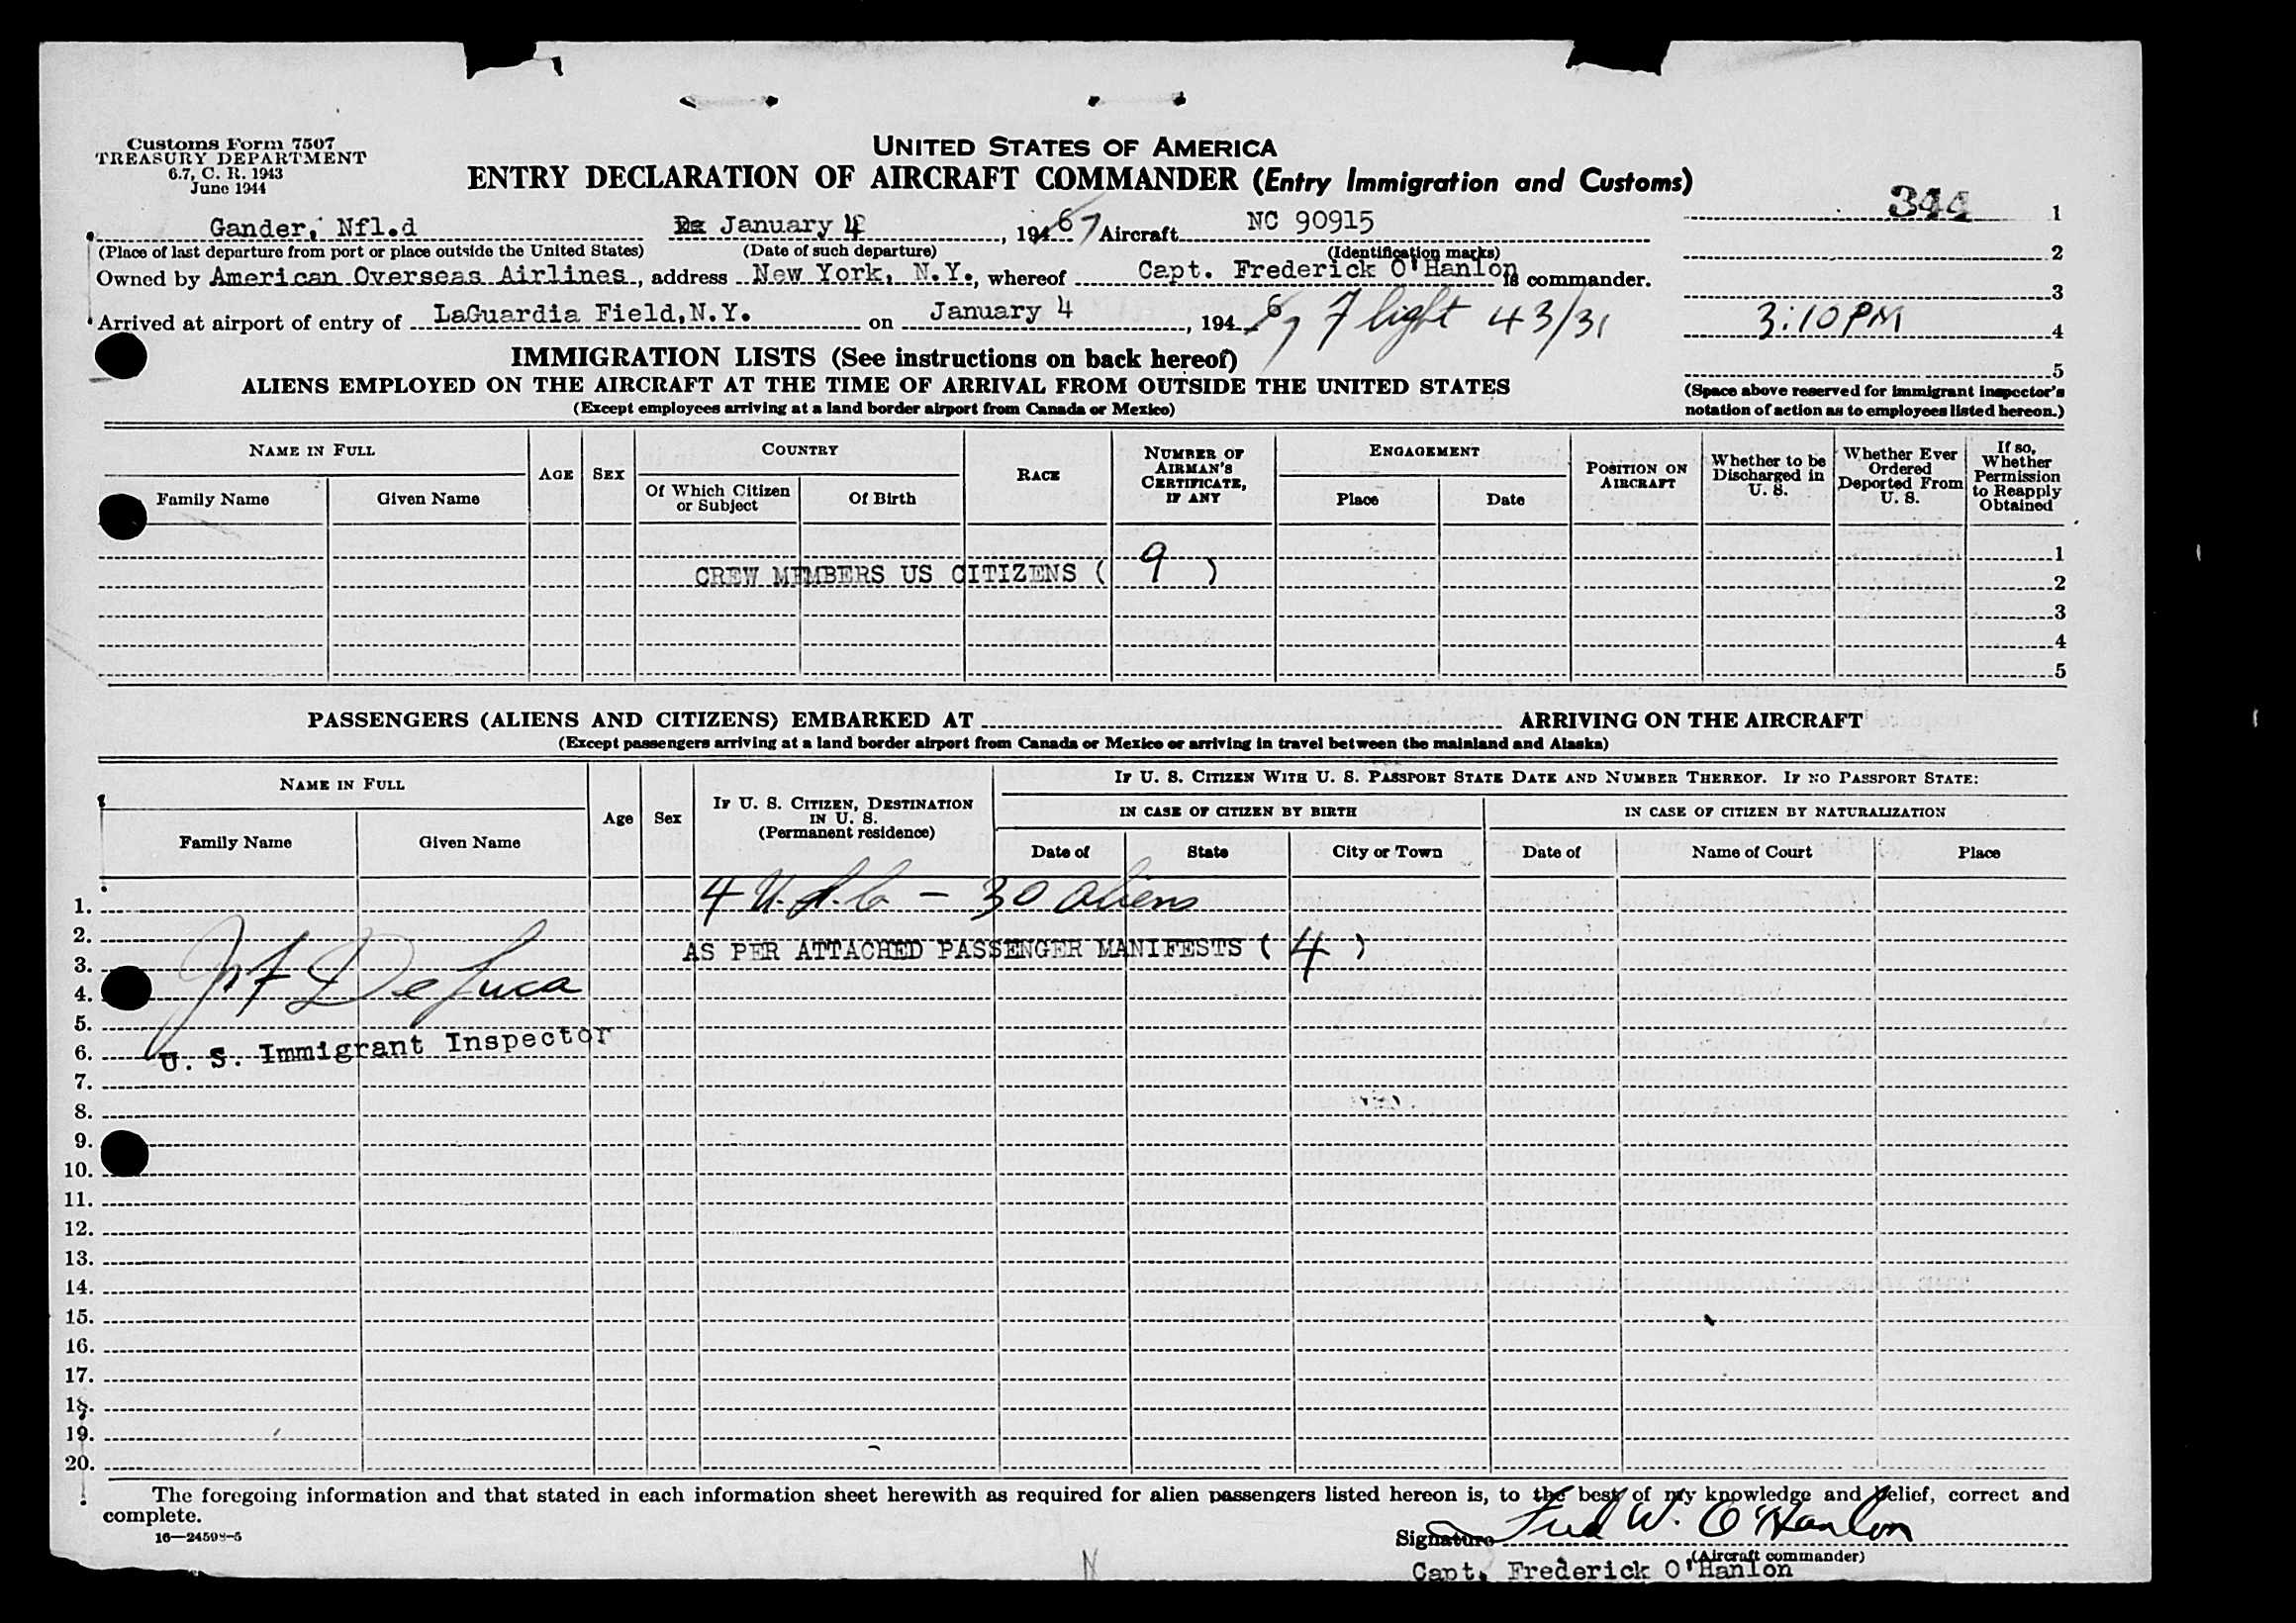 Customs Form 7507
TREASURY DEPARTMENT
6.7, C. R. 1943
June 1944
UNITED STATES OF AMERICA
ENTRY DECLARATION OF AIRCRAFT COMMANDER (Entry Immigration and Customs)
344 1
Gander, Nfl.d January 4, 1947 Aircraft NC 90915
(Place of last departure from port or place outside the United States) (Date of such departure) (Identification marks)
2
Owned by American Overseas Airlines, address New York, N.Y., whereof Capt. Frederick O'Hanlon is commander.
3
Arrived at airport of entry of LaGuardia Field, N.Y. on January 4, 1947 Flight 43/31
3:10 PM 4
5
IMMIGRATION LISTS (See instructions on back hereof)
ALIENS EMPLOYED ON THE AIRCRAFT AT THE TIME OF ARRIVAL FROM OUTSIDE THE UNITED STATES
(Except employees arriving at a land border airport from Canada or Mexico)
(Space above reserved for immigrant inspector's
notation of action as to employees listed hereon.)
NAME IN FULL
Family Name
Given Name
AGE
SEX
COUNTRY
Of Which Citizen
or Subject
Of Birth
RACE
NUMBER OF
AIRMAN'S
CERTIFICATE,
IF ANY
ENGAGEMENT
Place
Date
POSITION ON
AIRCRAFT
Whether to be
Discharged in
U. S.
Whether Ever
Ordered
Deported From
U. S.
If so,
Whether
Permission
to Reapply
Obtained
1
CREW MEMBERS US CITIZENS ( 9 )
2
3
4
5
PASSENGERS (ALIENS AND CITIZENS) EMBARKED AT ARRIVING ON THE AIRCRAFT
(Except passengers arriving at a land border airport from Canada or Mexico or arriving in travel between the mainland and Alaska)
NAME IN FULL
Family Name
Given Name
Age
Sex
IF U. S. CITIZEN, DESTINATION
IN U. S.
(Permanent residence)
IF U. S. CITIZEN WITH U. S. PASSPORT STATE DATE AND NUMBER THEREOF. IF NO PASSPORT STATE:
IN CASE OF CITIZEN BY BIRTH
IN CASE OF CITIZEN BY NATURALIZATION
Date of
State
City or Town
Date of
Name of Court
Place
1. 4 U.S.C. - 30 aliens
2.
AS PER ATTACHED PASSENGER MANIFESTS ( 4 )
3.
4. De Luca
5.
6. U. S. Immigrant Inspector
7.
8.
9.
10.
11.
12.
13.
14.
15.
16.
17.
18.
19.
20.
The foregoing information and that stated in each information sheet herewith as required for alien passengers listed hereon is, to the best of my knowledge and belief, correct and
complete.
16—24598-5
Signature Fred W. O'Hanlon
(Aircraft commander)
Capt. Frederick O'Hanlon